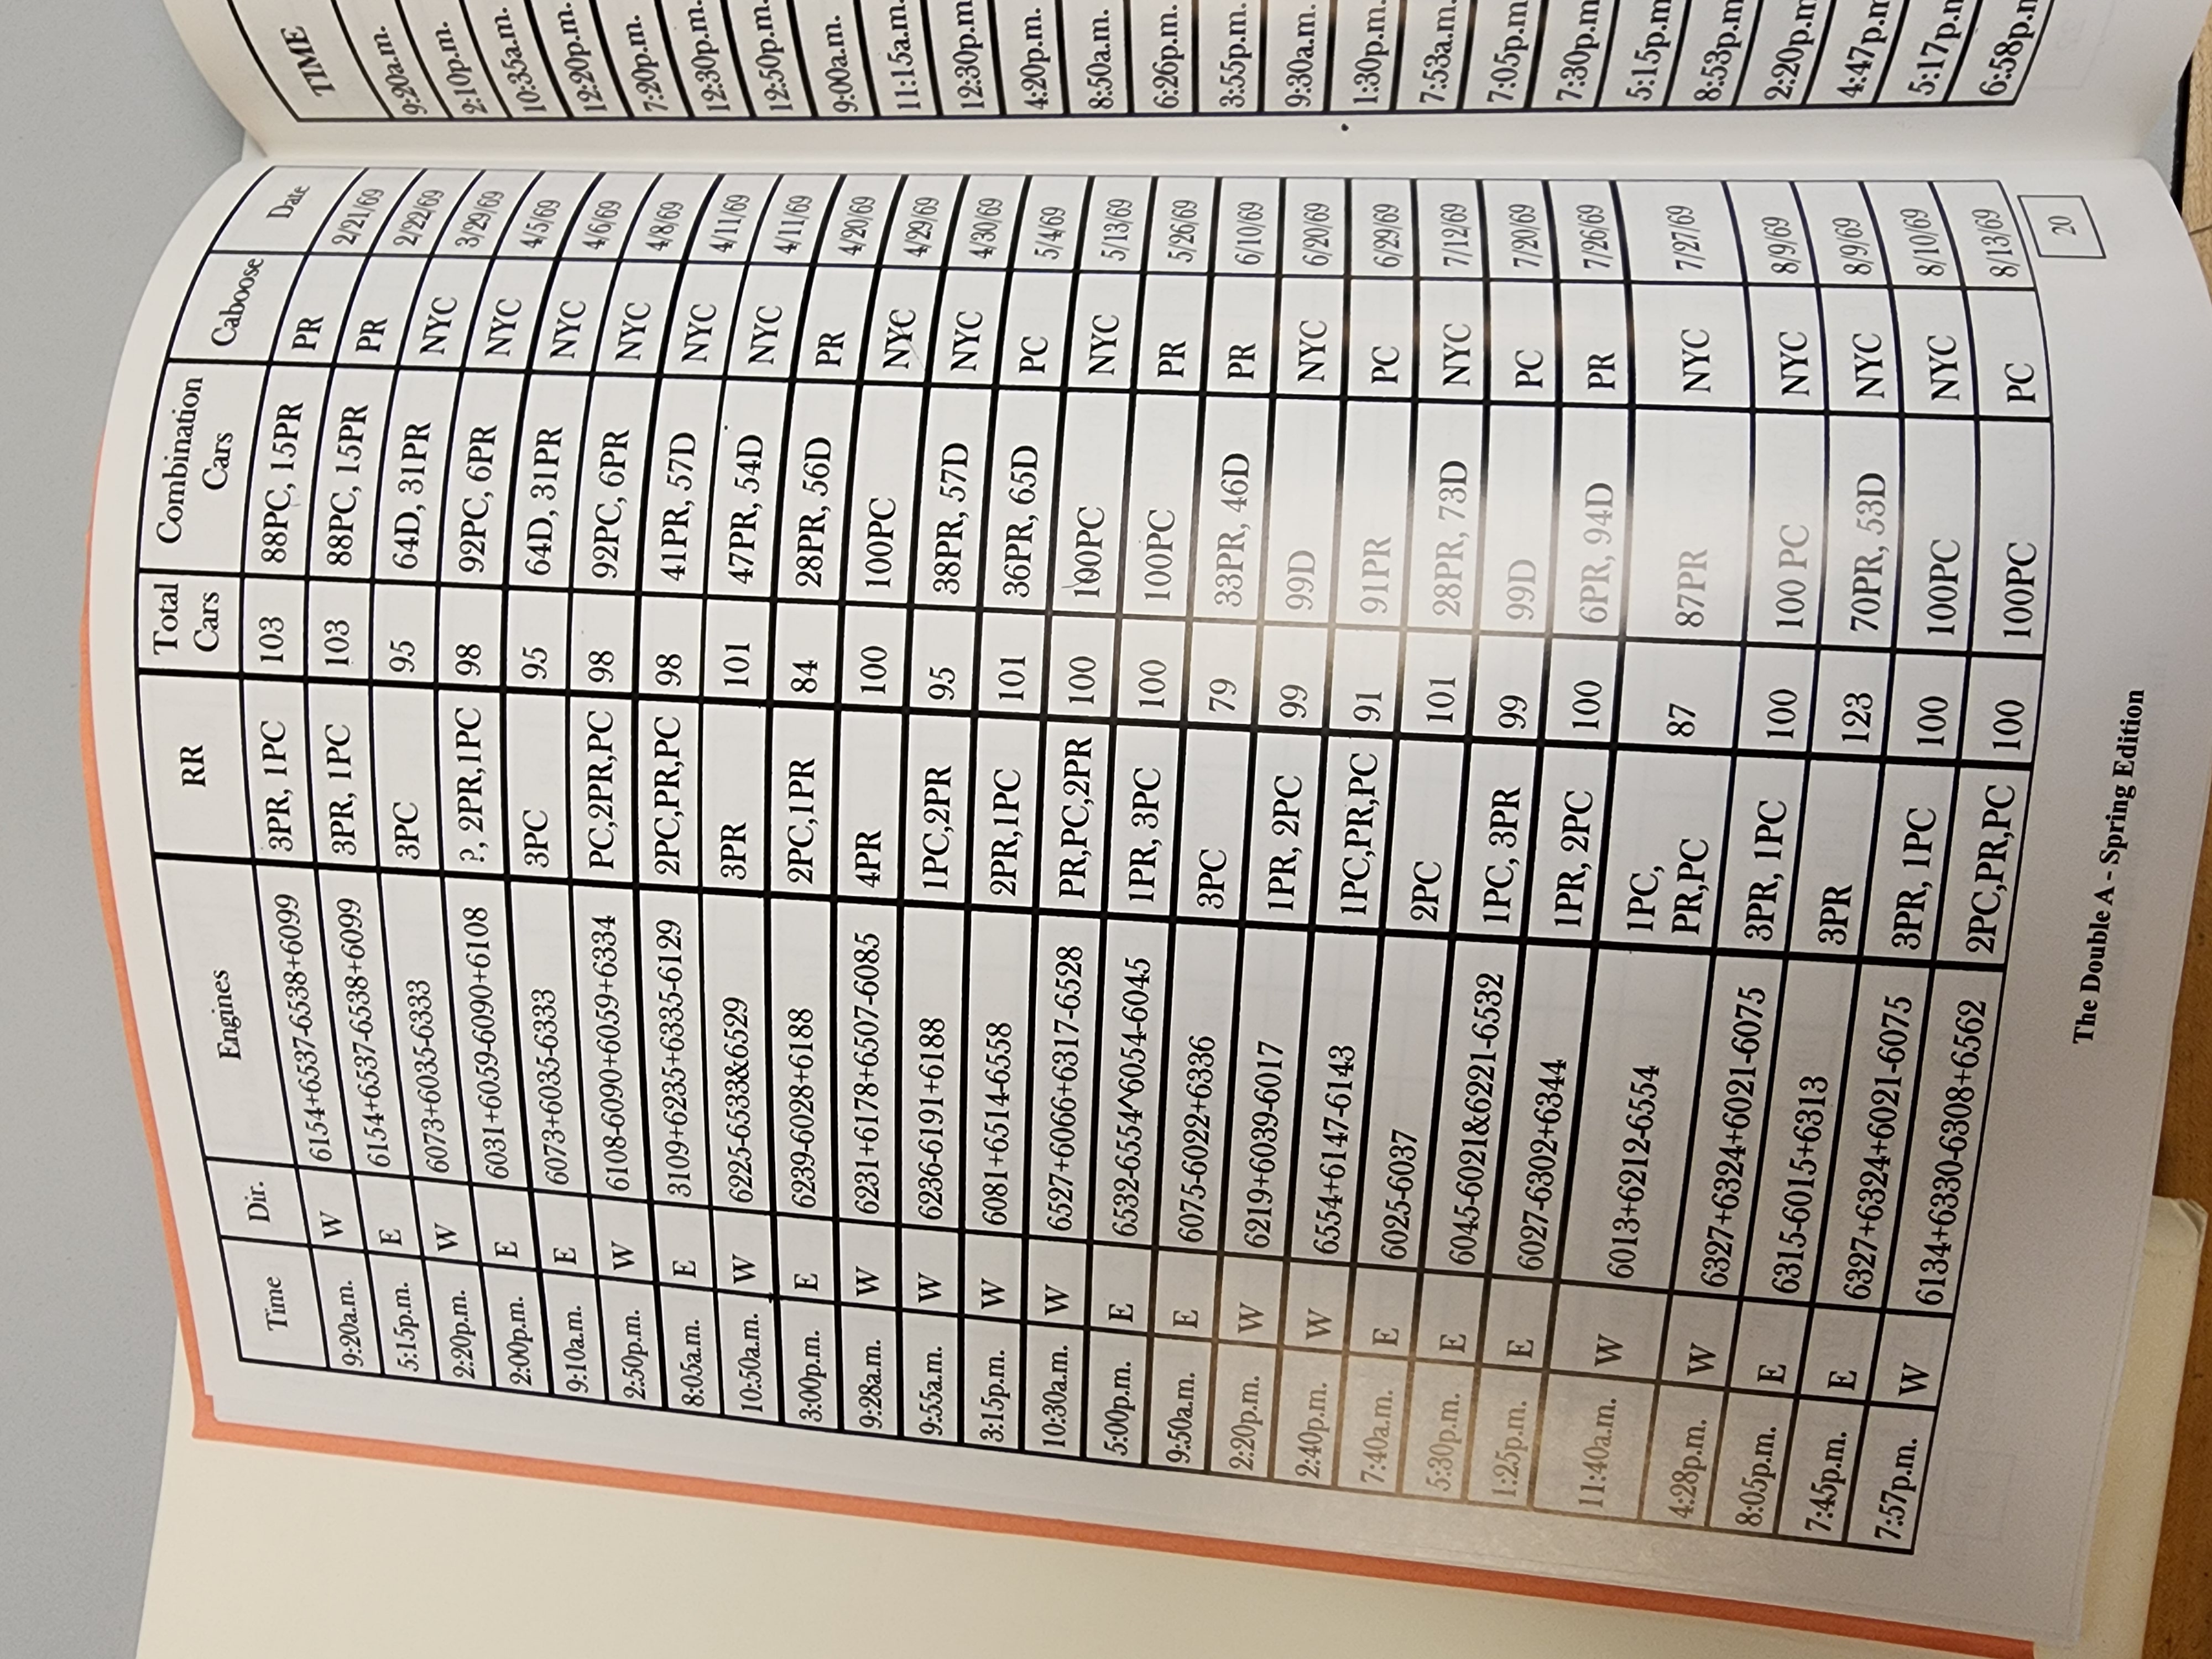 Time Dir. Engines RR Total Cars Combination Cars Caboose Date
9:20a.m. W 6154+6537-6538+6099 3PR, 1PC 103 88PC, 15PR PR 2/21/69
5:15p.m. E 6154+6537-6538+6099 3PR, 1PC 103 88PC, 15PR PR 2/22/69
2:20p.m. W 6073+6035-6333 3PC 95 64D, 31PR NYC 3/29/69
2:00p.m. E 6031+6059-6090+6108 ?, 2PR,1PC 98 92PC, 6PR NYC 4/5/69
9:10a.m. E 6073+6035-6333 3PC 95 64D, 31PR NYC 4/6/69
2:50p.m. W 6108-6090+6059+6334 PC,2PR,PC 98 92PC, 6PR NYC 4/8/69
8:05a.m. E 3109+6235+6335-6129 2PC,PR,PC 98 41PR, 57D NYC 4/11/69
10:50a.m. W 6225-6533&6529 3PR 101 47PR, 54D NYC 4/11/69
3:00p.m. E 6239-6028+6188 2PC,1PR 84 28PR, 56D PR 4/20/69
9:28a.m. W 6231+6178+6507-6085 4PR 100 100PC NYC 4/29/69
9:55a.m. W 6236-6191+6188 1PC,2PR 95 38PR, 57D NYC 4/30/69
3:15p.m. W 6081+6514-6558 2PR,1PC 101 36PR, 65D PC 5/4/69
10:30a.m. W 6527+6066+6317-6528 PR,PC,2PR 100 100PC NYC 5/13/69
5:00p.m. E 6532-6554^6054-6045 1PR, 3PC 100 100PC PR 5/26/69
9:50a.m. E 6075-6022+6336 3PC 79 33PR, 46D PR 6/10/69
2:20p.m. W 6219+6039-6017 1PR, 2PC 99 99D NYC 6/20/69
2:40p.m. W 6554+6147-6143 1PC,PR,PC 91 91PR PC 6/29/69
7:40a.m. E 6025-6037 2PC 101 28PR, 73D NYC 7/12/69
5:30p.m. E 6045-6021&6221-6532 1PC, 3PR 99 99D PC 7/20/69
1:25p.m. E 6027-6302+6344 1PR, 2PC 100 6PR, 94D PR 7/26/69
11:40a.m. W 6013+6212-6554 1PC, PR,PC 87 87PR NYC 7/27/69
4:28p.m. W 6327+6324+6021-6075 3PR, 1PC 100 100 PC NYC 8/9/69
8:05p.m. E 6315-6015+6313 3PR 123 70PR, 53D NYC 8/9/69
7:45p.m. E 6327+6324+6021-6075 3PR, 1PC 100 100PC NYC 8/10/69
7:57p.m. W 6134+6330-6308+6562 2PC,PR,PC 100 100PC PC 8/13/69
The Double A - Spring Edition
20
TIME
9:20a.m.
2:10p.m.
10:35a.m.
12:20p.m.
7:20p.m.
12:30p.m.
12:50p.m.
9:00a.m.
11:15a.m.
12:30p.m
4:20p.m.
8:50a.m.
6:26p.m.
3:55p.m.
9:30a.m.
1:30p.m.
7:53a.m.
7:05p.m
7:30p.m
5:15p.m
8:53p.m
2:20p.m
4:47p.m
5:17p.m
6:58p.m